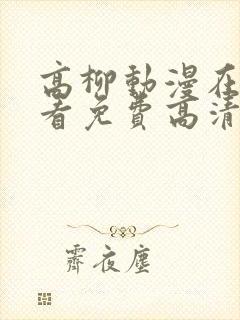 高柳動漫在
看免費高清
霽夜塵